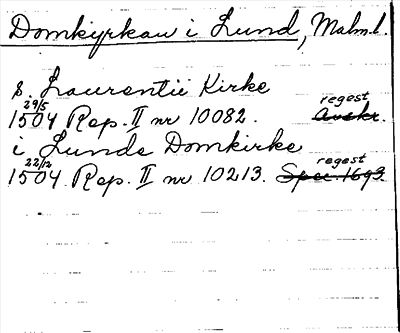 Domkyrkan i Lund, Malm.l.
s. Laurentii Kirke
29/5 regest
1504 Rep. II nr 10082. Avskr.
i Lunde Domkirke
22/12 regest
1504 Rep. II nr 10213. Spec. 1693.